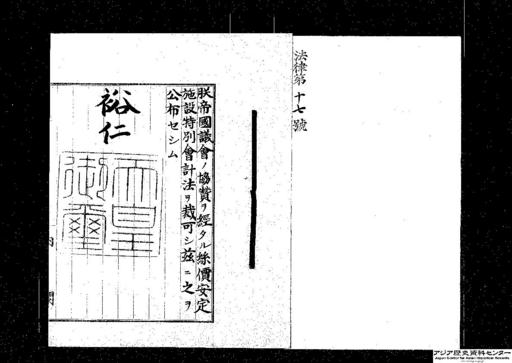 法律第十七號
朕帝國議會ノ協贊ヲ經タル絲價安定
施設特別會計法ヲ裁可シ茲ニ之ヲ
公布セシム
裕仁
天皇
御璽
内閣
アジア歴史資料センター
Japan Center for Asian Historical Records